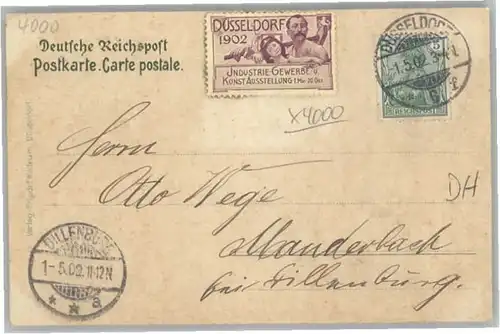 4000
Deutsche Reichspost
Postkarte. Carte postale.
DÜSSELDORF
1902
INDUSTRIE-GEWERBE U.
KUNST AUSSTELLUNG 1. MAI-20. Oct
DÜSSELDORF
1.5.02
5
REICHSPOST
x4000
Herrn
Otto Wege
DH
Manderbach
bei Dillenburg.
DILLENBURG
1-5.02.11-12N
* * a
Verlag
Düsseldorf